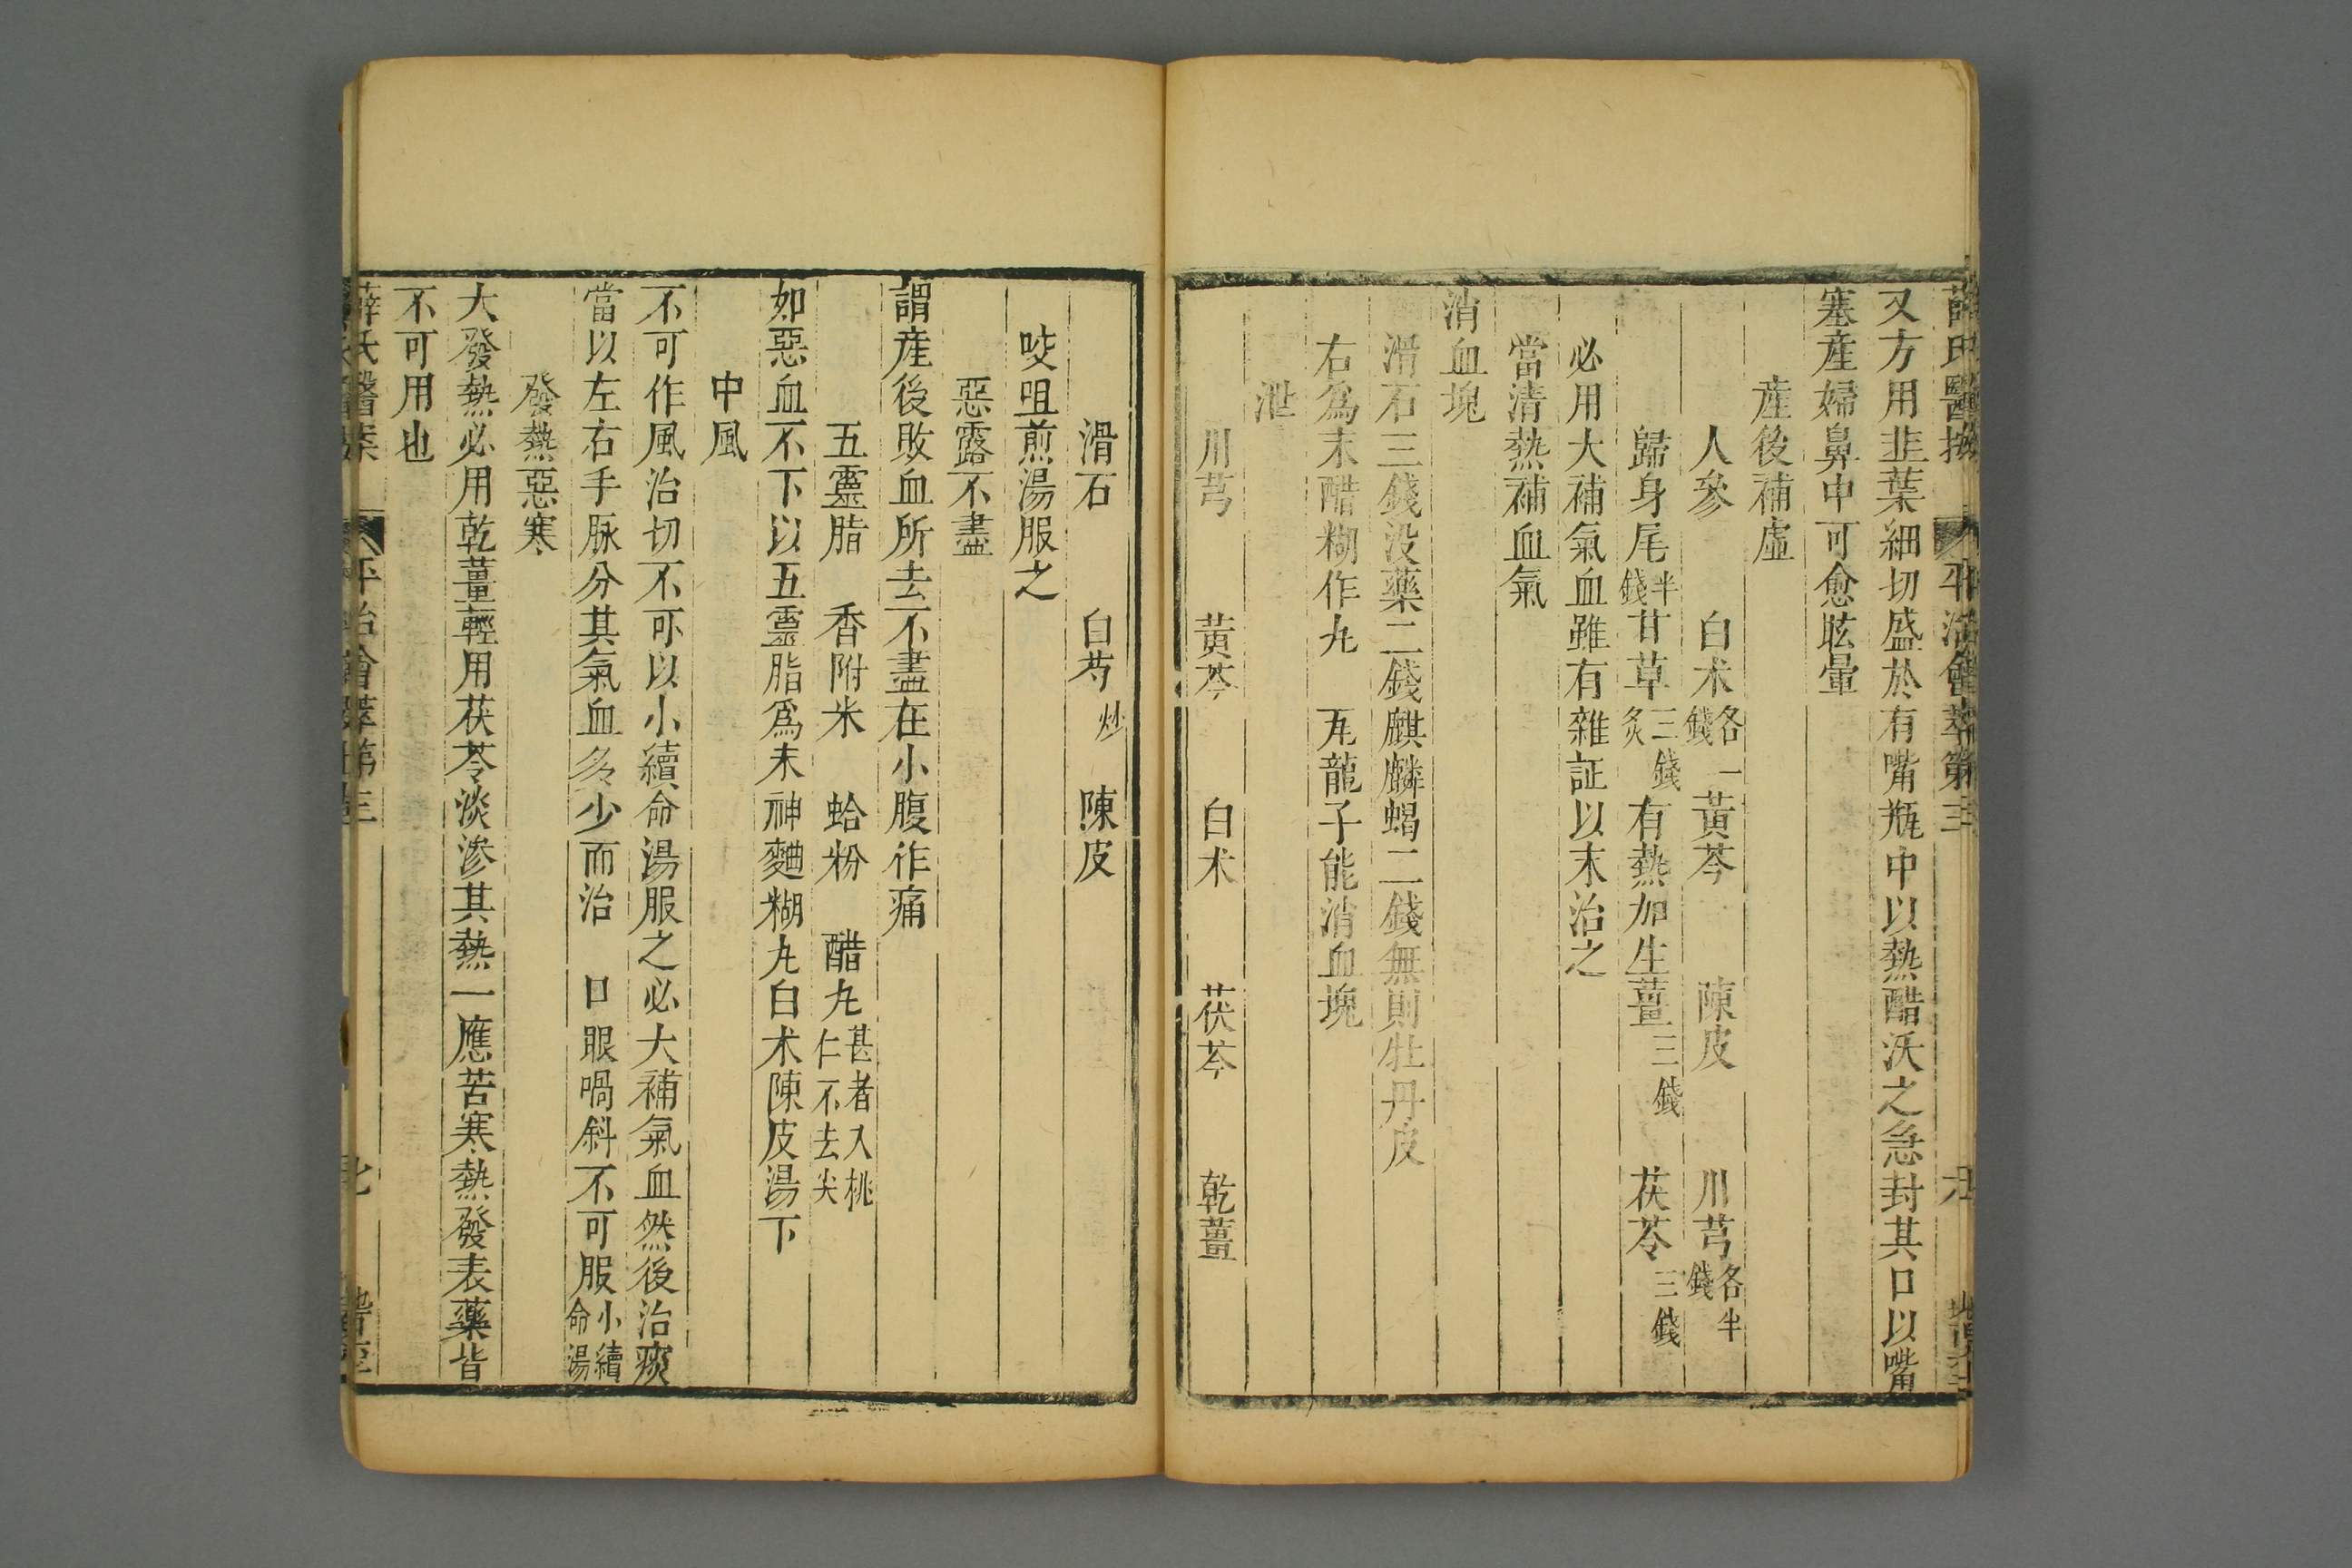 薛氏醫按 平治會萃第三
又方用韭葉細切盛於有嘴瓶中以熱醋沃之急封其口以嘴
塞產婦鼻中可愈眩暈
產後補虛
人參 白朮各一錢 黃芩 陳皮 川芎各半錢
歸身尾半錢甘草三錢炙有熱加生薑三錢 茯苓三錢
必用大補氣血雖有雜証以末治之
當清熱補血氣
消血塊
滑石三錢没藥二錢麒麟蝎二錢無則牡丹皮
右為末醋糊作丸 瓦龍子能消血塊
泄
川芎 黃芩 白朮 茯苓 乾薑
滑石 白芍炒 陳皮
㕮咀煎湯服之
惡露不盡
謂産後敗血所去不盡在小腹作痛
五靈脂 香附米 蛤粉 醋丸甚者入桃仁不去尖
如惡血不下以五靈脂爲末神麯糊丸白朮陳皮湯下
中風
不可作風治切不可以小續命湯服之必大補氣血然後治痰
當以左右手脉分其氣血多少而治 口眼喎斜不可服小續命湯
發熱惡寒
大發熱必用乾薑輕用茯苓淡滲其熱一應苦寒熱發表藥皆
不可用也
薛氏醫案 平治會萃第三